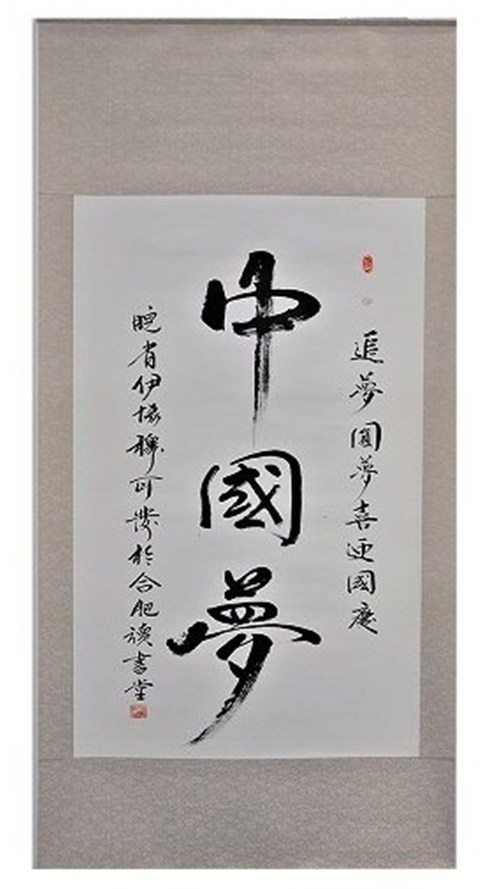 追夢圓夢喜迎國慶
中國夢
皖省伊協穆可發於合肥讀書堂